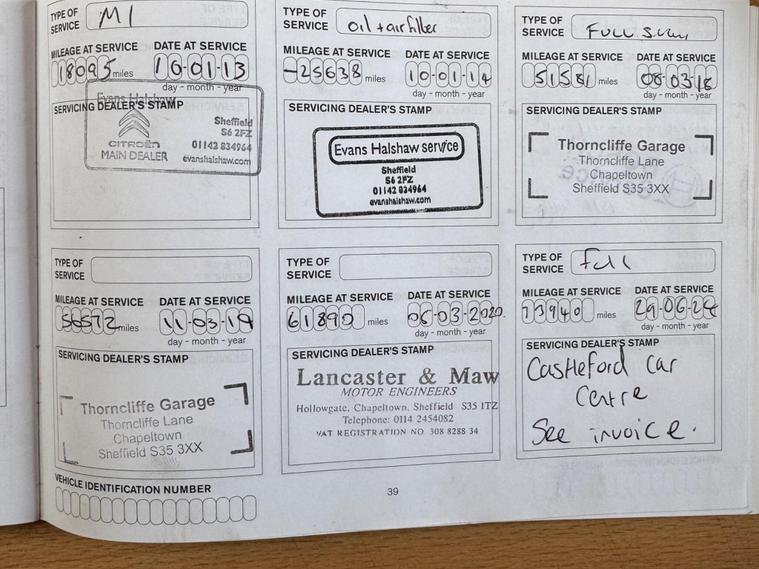 TYPE OF SERVICE M1
MILEAGE AT SERVICE DATE AT SERVICE
18095 miles 10-01-13
day - month - year
SERVICING DEALER'S STAMP
Evans Halshaw
Sheffield
S6 2FZ
CITROËN
MAIN DEALER
01142 834964
evanshalshaw.com
TYPE OF SERVICE oil + air filter
MILEAGE AT SERVICE DATE AT SERVICE
-25638 miles 10-01-14
day - month - year
SERVICING DEALER'S STAMP
Evans Halshaw service
Sheffield
S6 2FZ
01142 834964
evanshalshaw.com
TYPE OF SERVICE Full
MILEAGE AT SERVICE DATE AT SERVICE
51581 miles 08-03-18
day - month - year
SERVICING DEALER'S STAMP
Thorncliffe Garage
Thorncliffe Lane
Chapeltown
Sheffield S35 3XX
TYPE OF SERVICE
MILEAGE AT SERVICE DATE AT SERVICE
56572 miles 11-03-19
day - month - year
SERVICING DEALER'S STAMP
Thorncliffe Garage
Thorncliffe Lane
Chapeltown
Sheffield S35 3XX
TYPE OF SERVICE
MILEAGE AT SERVICE DATE AT SERVICE
61890 miles 06-03-2020
day - month - year
SERVICING DEALER'S STAMP
Lancaster & Maw
MOTOR ENGINEERS
Hollowgate, Chapeltown, Sheffield S35 1TZ
Telephone: 0114 2454082
VAT REGISTRATION NO 308 8288 34
TYPE OF SERVICE full
MILEAGE AT SERVICE DATE AT SERVICE
73940 miles 29-06-24
day - month - year
SERVICING DEALER'S STAMP
Castleford Car
Centre
See invoice.
VEHICLE IDENTIFICATION NUMBER
39